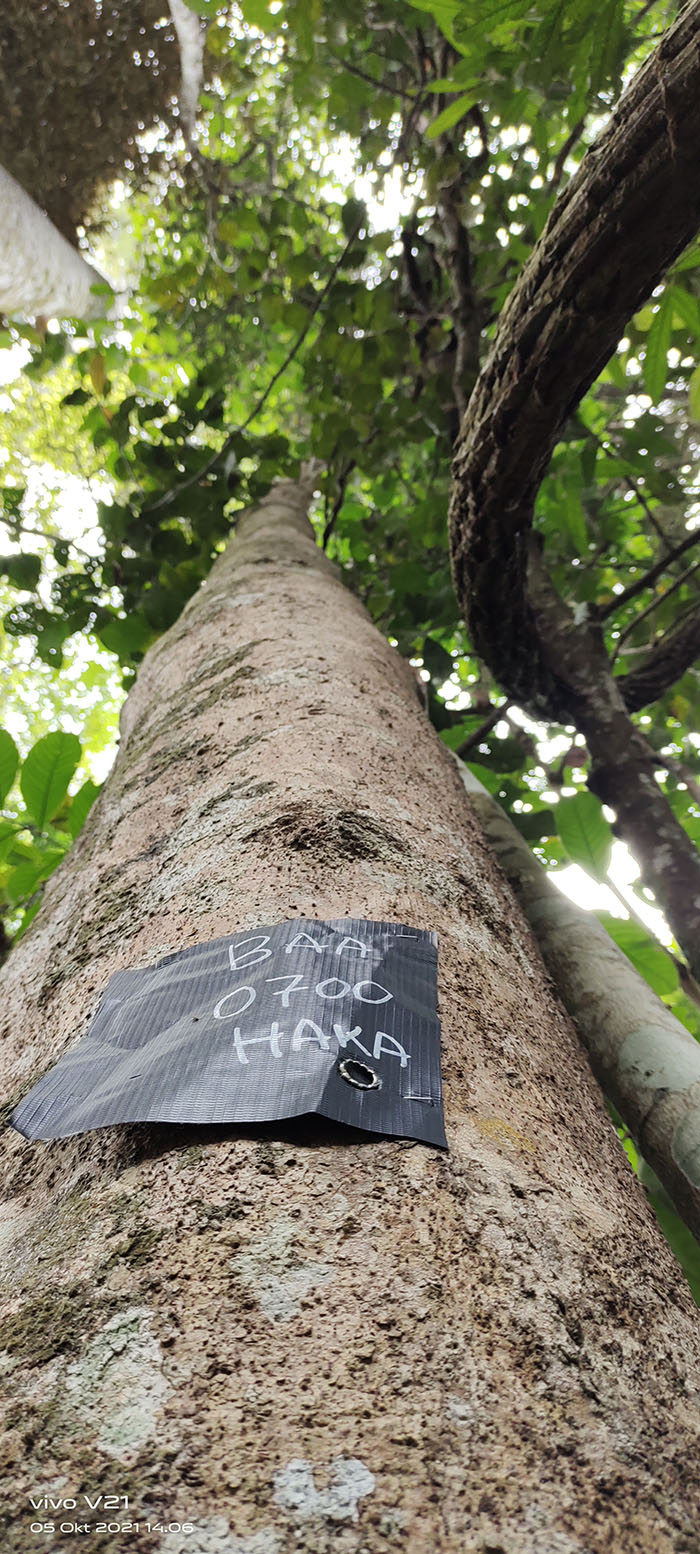 BAA
0700
HAKA
vivo V21
05 Okt 2021 14.06